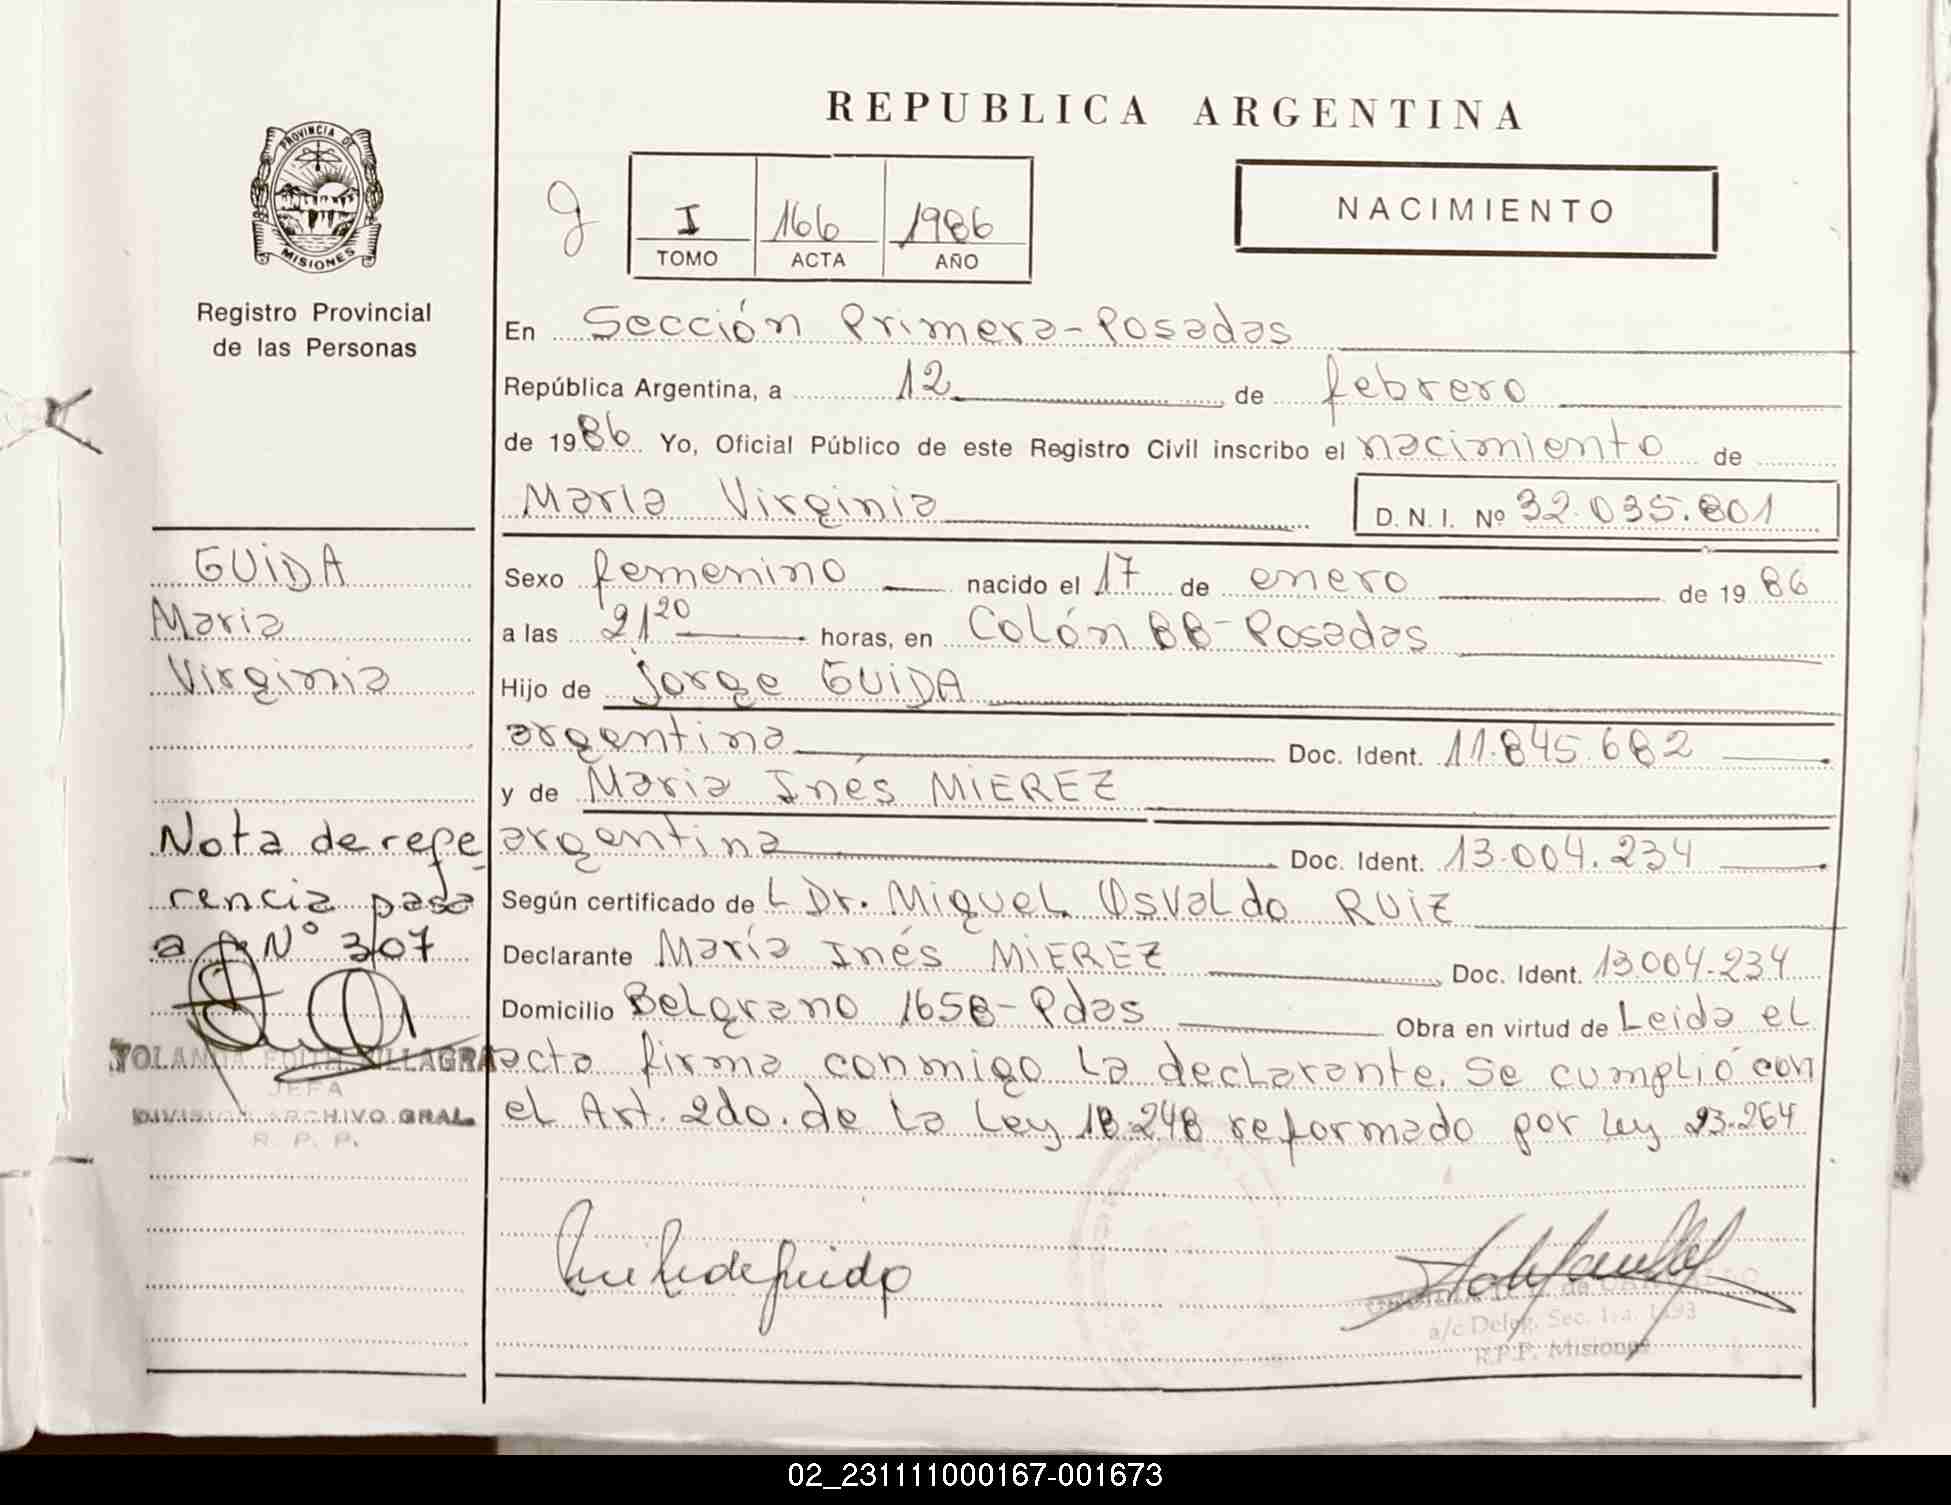 REPUBLICA ARGENTINA
PROVINCIA DE
MISIONES
Registro Provincial
de las Personas
I 166 1986
TOMO ACTA AÑO
NACIMIENTO
En Sección Primera-Posadas
República Argentina, a 12 de febrero
de 1986 Yo, Oficial Público de este Registro Civil inscribo el nacimiento de
María Virginia D. N. I. Nº 32.035.801
GUIDA
Maria
Virginia
Sexo femenino nacido el 17 de enero de 1986
a las 21 20 horas, en Colón 88-Posadas
Hijo de Jorge GUIDA
argentina Doc. Ident. 11.845.682
y de María Inés MIEREZ
argentina Doc. Ident. 13.004.234
Según certificado de L Dr. Miguel Osvaldo RUIZ
Declarante María Inés MIEREZ Doc. Ident. 13004.234
Domicilio Belgrano 1658-Pdas Obra en virtud de Leida el
acta firma conmigo la declarante. Se cumplió con
el Art. 2do. de la Ley 18.248 reformado por ley 23.264
Nota de refe-
rencia pasa
a Nº 307
YOLANDA EDITH VILLAGRA
JEFA
DIVISION ARCHIVO GRAL.
R. P. P.
a/c Deleg. Sec. 1ra. 1393
R.P.P. Misiones
02_231111000167-001673